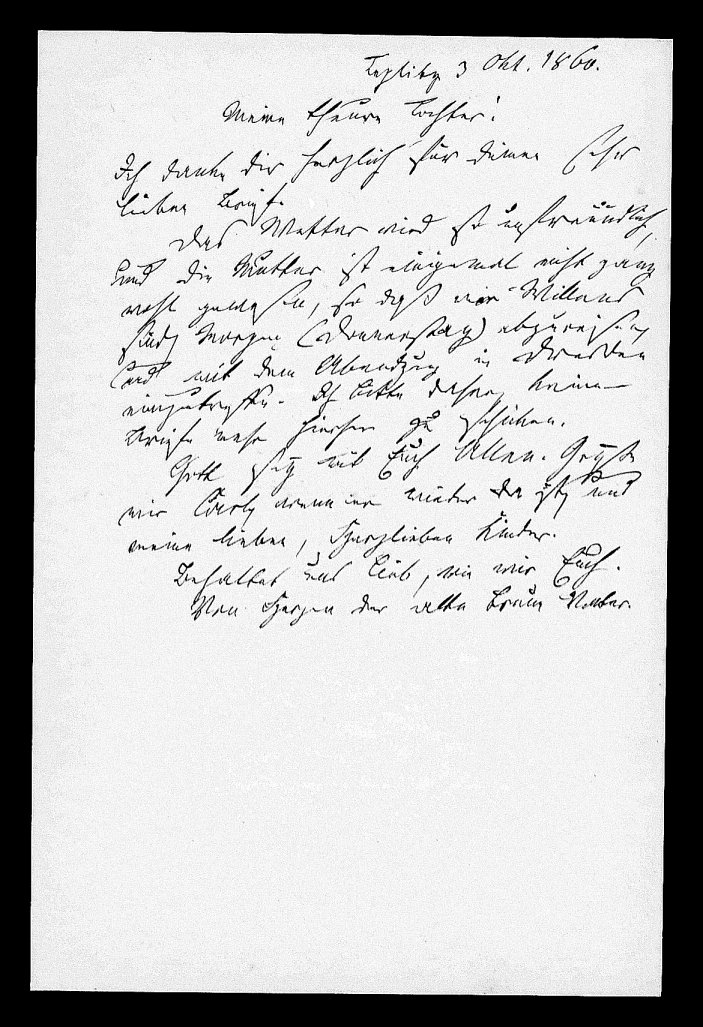 Teplitz 3 Okt. 1860.
Meine theure Tochter!
Ich danke dir herzlich für deinen sehr
lieben Brief.
Das Wetter wird so unfreundlich,
und die Mutter ist einigemal nicht ganz
wohl gewesen, so daß wir Willens
sind, Morgen (Donnerstag) abzureisen,
und mit dem Abendzug in Dresden
einzutreffen. Ich bitte daher, keine
Briefe mehr hierher zu schicken.
Gott sey mit Euch Allen. Grüße
mir Carl, wenn er wieder da ist, und
meine lieben, herzlieben Kinder.
Behaltet uns lieb, wie wir Euch.
Von Herzen der alte treue Vater.